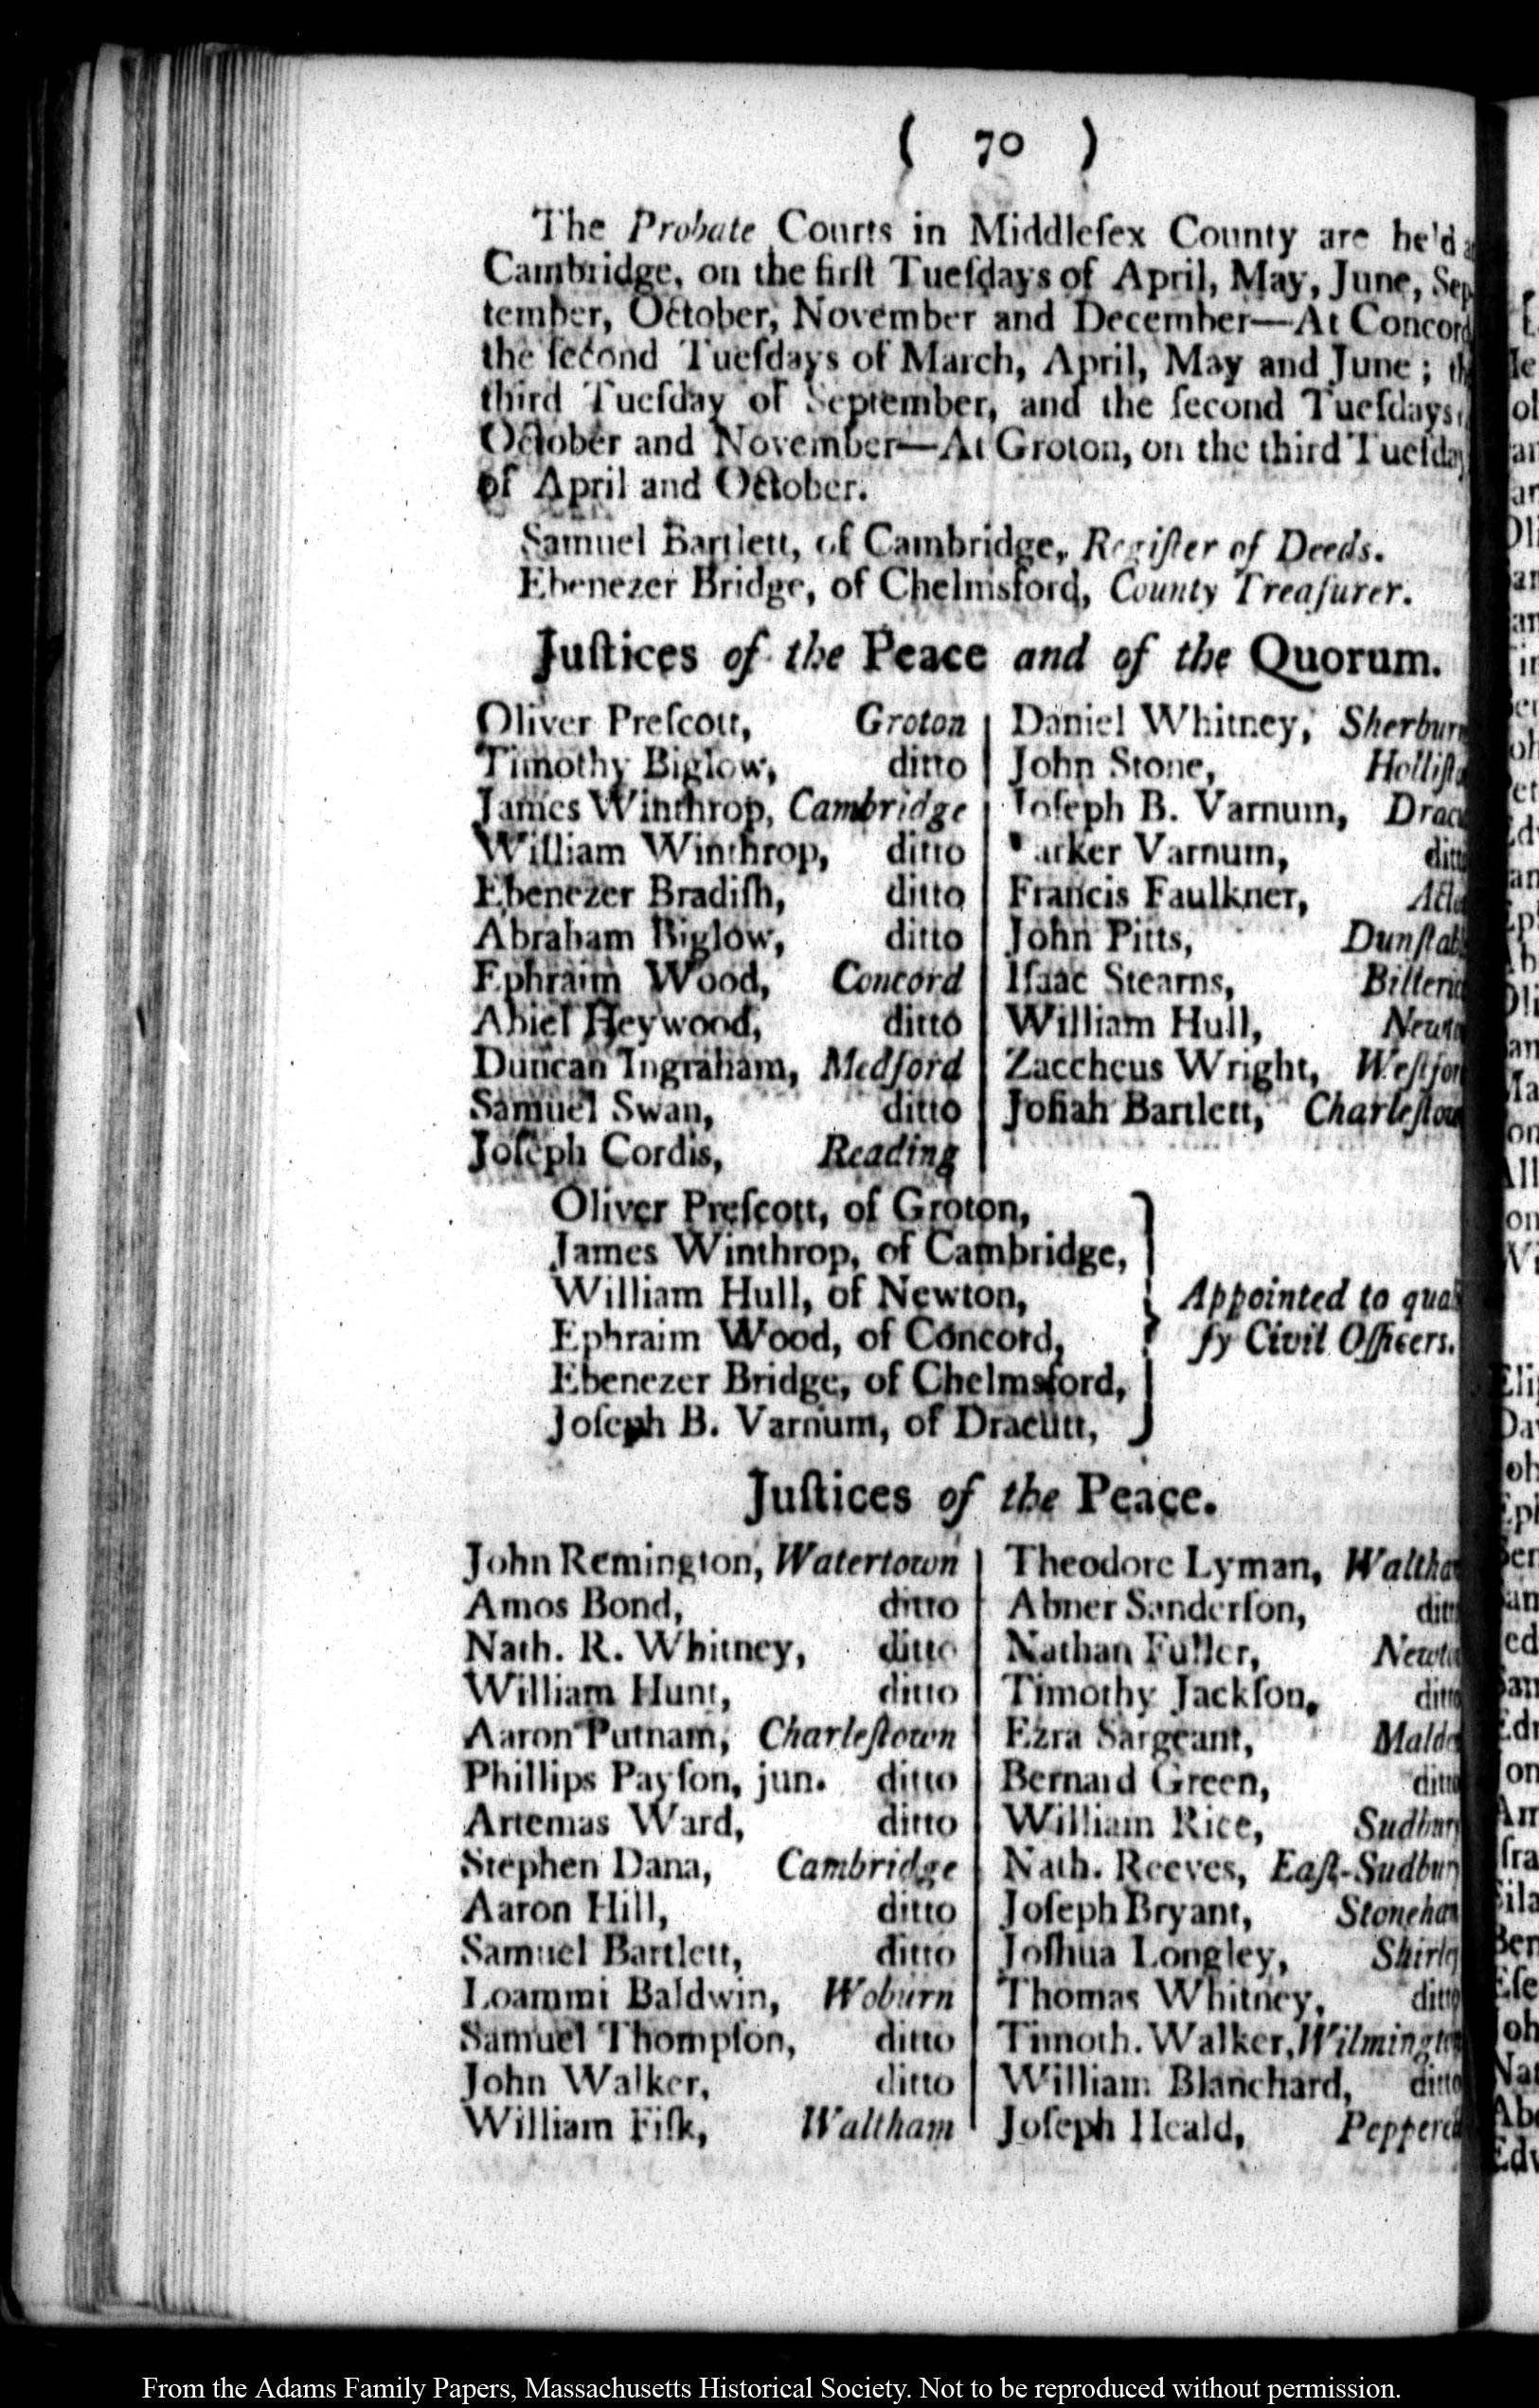 ( 70 )
The Probate Courts in Middleſex County are he'd
Cambridge, on the firſt Tueſdays of April, May, June, Sep
tember, October, November and December—At Concord
the ſecond Tueſdays of March, April, May and June; th
third Tueſday of September, and the ſecond Tueſdays
October and November—At Groton, on the third Tueſday
of April and October.
Samuel Bartlett, of Cambridge, Regiſter of Deeds.
Ebenezer Bridge, of Chelmsford, County Treaſurer.
Juſtices of the Peace and of the Quorum.
Oliver Preſcott, Groton
Timothy Biglow, ditto
James Winthrop, Cambridge
William Winthrop, ditto
Ebenezer Bradiſh, ditto
Abraham Biglow, ditto
Ephraim Wood, Concord
Abiel Heywood, ditto
Duncan Ingraham, Medford
Samuel Swan, ditto
Joſeph Cordis, Reading
Daniel Whitney, Sherburn
John Stone, Holliſt
Joſeph B. Varnum, Drac
Parker Varnum, ditt
Francis Faulkner, Act
John Pitts, Dunſtab
Iſaac Stearns, Billeric
William Hull, Newto
Zaccheus Wright, Weſtfor
Joſiah Bartlett, Charleſtow
Oliver Preſcott, of Groton,
James Winthrop, of Cambridge,
William Hull, of Newton,
Ephraim Wood, of Concord,
Ebenezer Bridge, of Chelmsford,
Joſeph B. Varnum, of Dracutt,
Appointed to qua
fy Civil Officers.
Juſtices of the Peace.
John Remington, Watertown
Amos Bond, ditto
Nath. R. Whitney, ditto
William Hunt, ditto
Aaron Putnam, Charleſtown
Phillips Payſon, jun. ditto
Artemas Ward, ditto
Stephen Dana, Cambridge
Aaron Hill, ditto
Samuel Bartlett, ditto
Loammi Baldwin, Woburn
Samuel Thompſon, ditto
John Walker, ditto
William Fiſk, Waltham
Theodore Lyman, Waltha
Abner Sanderſon, ditt
Nathan Fuller, Newto
Timothy Jackſon, ditto
Ezra Sargeant, Malde
Bernard Green, ditto
William Rice, Sudbury
Nath. Reeves, Eaſt-Sudbury
Joſeph Bryant, Stoneham
Joſhua Longley, Shirley
Thomas Whitney, ditto
Timoth. Walker, Wilmington
William Blanchard, ditto
Joſeph Heald, Pepperel
From the Adams Family Papers, Massachusetts Historical Society. Not to be reproduced without permission.